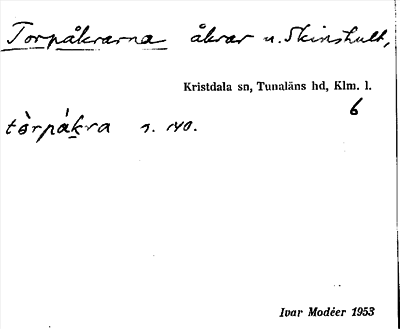 Torpåkrarna åkrar u. Skinshult,
Kristdala sn, Tunaläns hd, Klm. l.
6
tòrpákra
Ivar Modéer 1953